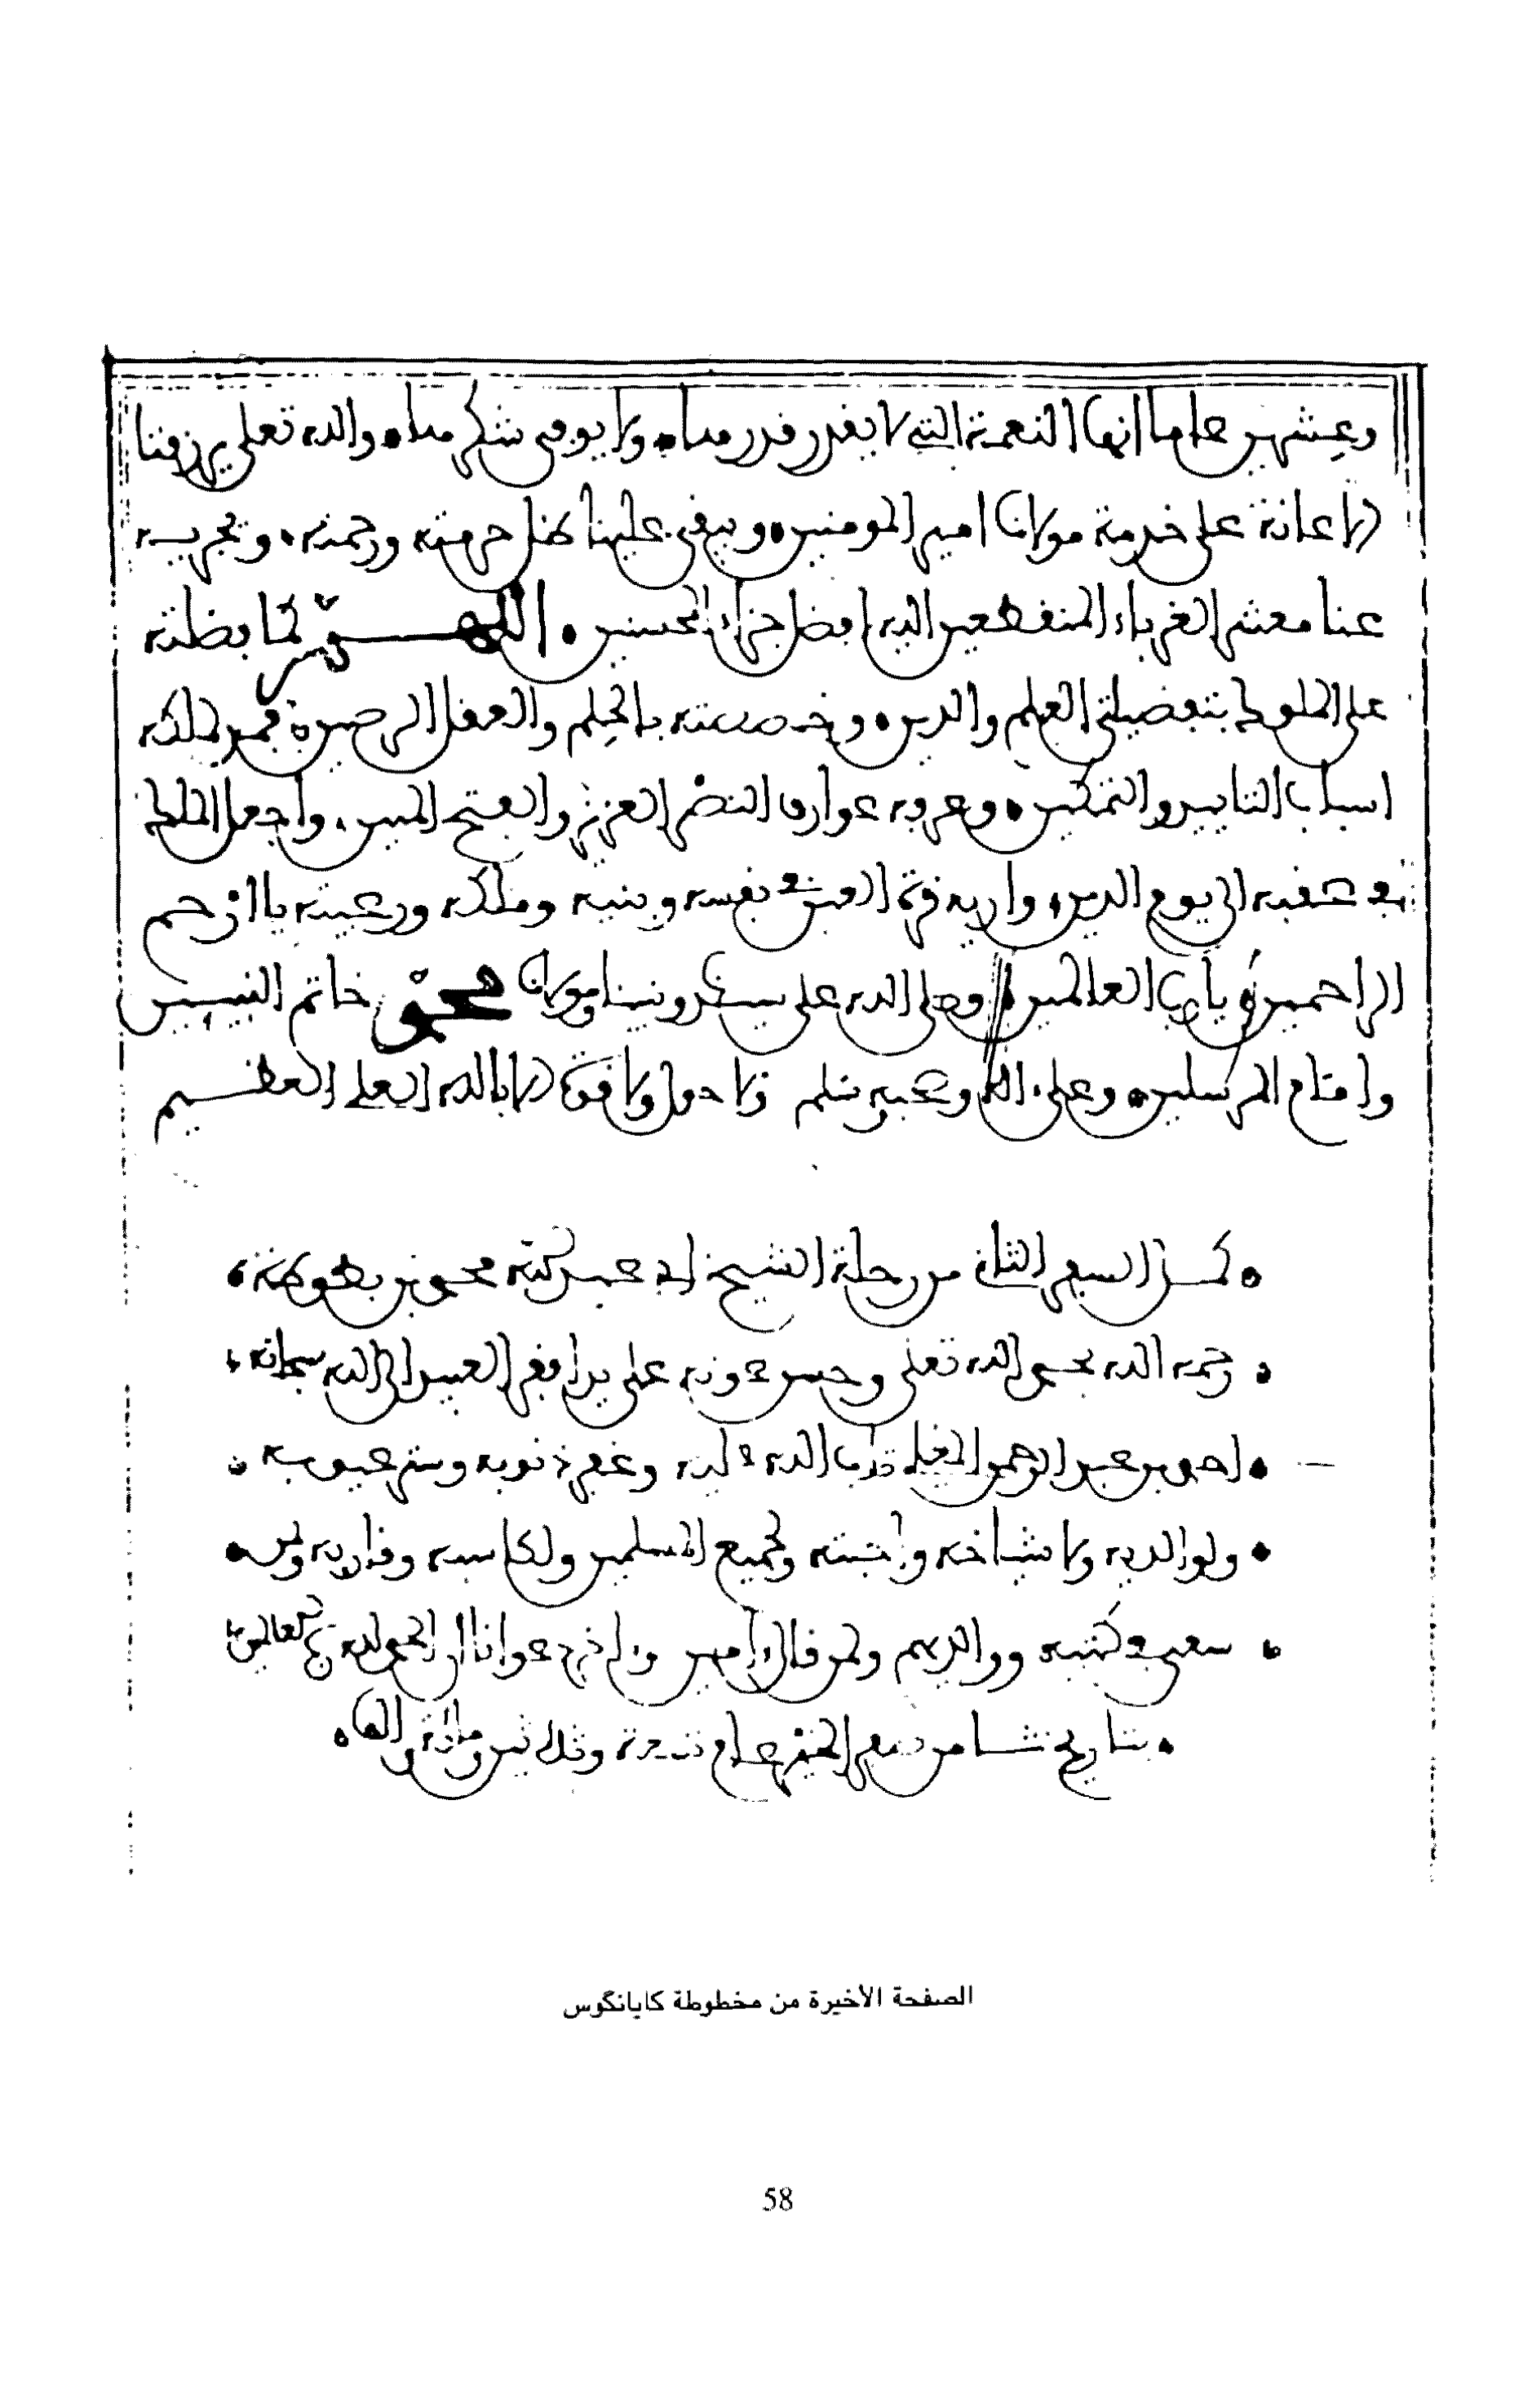 وعشرين عاما انها النعمة التي لا يقدر قدرها ولا يوفى شكرها والله تعلى يرزقنا
الاعانة على خدمة مولانا امير المومنين ويبقي علينا ظل حرمته ورحمته ويجزيه
عنا معشر الغرباء المنقطعين اليه افضل جزاء المحسنين اللهم كما فضلته
على الملوك بفضيلتي العلم والدين وخصصته بالحلم والعقل الرصين فمد لملكه
اسباب التاييد والتمكين وعرفه عوارف النصر العزيز والفتح المبين واجعل الملك
في عقبه الى يوم الدين واره قرة العين في نفسه وبنيه وملكه ورعيته يا ارحم
الراحمين يا رب العالمين وصلى الله على سيدنا ونبينا ومولانا محمد خاتم النبيين
وامام المرسلين وعلى اله وصحبه وسلم ولا حول ولا قوة الا بالله العلي العظيم
كمل السفر الثاني من رحلة الشيخ ابي عبد الله محمد بن بطوطة
رحمه الله بحمد الله تعلى وحسن عونه على يد افقر العبيد الى الله سبحانه
احمد بن عبد الرحمن تاب الله عليه وغفر ذنوبه وستر عيوبه
ولوالديه ولاشياخه واحبته ولجميع المسلمين ولكاسبه وقاريه ولمن
سعى في كتبه ووالديهم ولمن قال امين واخر دعوانا ان الحمد لله رب العالمين
بتاريخ من صفر الخير عام تسعة وثلاثين ومائة والف
الصفحة الأخيرة من مخطوطة كايانگوس
58